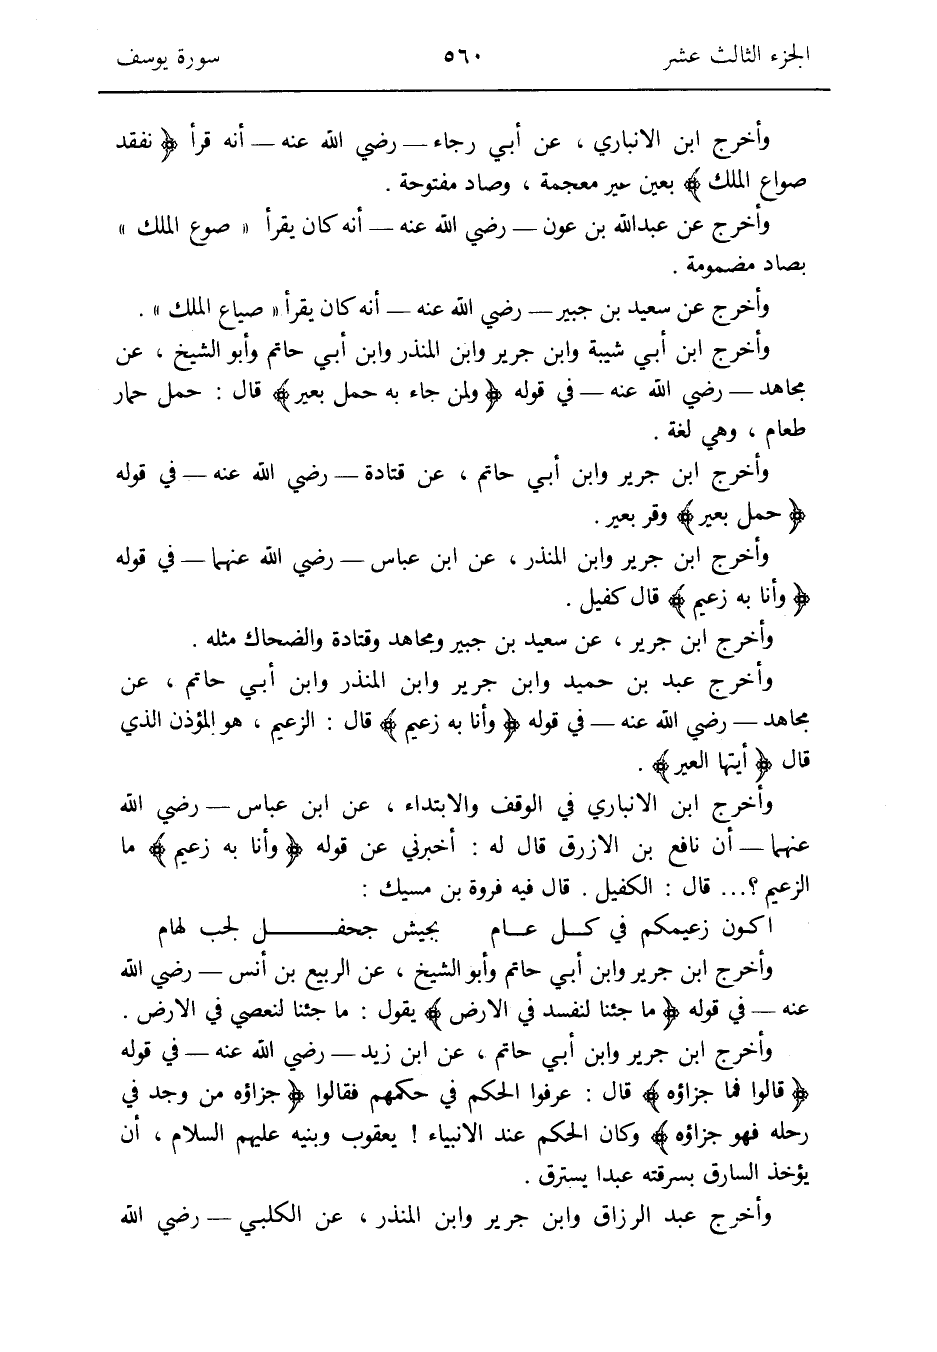 الجزء الثالث عشر ٥٦٠ سورة يوسف
وأخرج ابن الانباري ، عن أبي رجاء — رضي الله عنه — أنه قرأ ﴿ نفقد
صواع الملك ﴾ بعين غير معجمة ، وصاد مفتوحة .
وأخرج عن عبدالله بن عون — رضي الله عنه — أنه كان يقرأ « صوع الملك »
بصاد مضمومة .
وأخرج عن سعيد بن جبير — رضي الله عنه — أنه كان يقرأ « صياع الملك » .
وأخرج ابن أبي شيبة وابن جرير وابن المنذر وابن أبي حاتم وأبو الشيخ ، عن
مجاهد — رضي الله عنه — في قوله ﴿ ولمن جاء به حمل بعير ﴾ قال : حمل حمار
طعام ، وهي لغة .
وأخرج ابن جرير وابن أبي حاتم ، عن قتادة — رضي الله عنه — في قوله
﴿ حمل بعير ﴾ وقر بعير .
وأخرج ابن جرير وابن المنذر ، عن ابن عباس — رضي الله عنهما — في قوله
﴿ وأنا به زعيم ﴾ قال كفيل .
وأخرج ابن جرير ، عن سعيد بن جبير ومجاهد وقتادة والضحاك مثله .
وأخرج عبد بن حميد وابن جرير وابن المنذر وابن أبي حاتم ، عن
مجاهد — رضي الله عنه — في قوله ﴿ وأنا به زعيم ﴾ قال : الزعيم ، هو المؤذن الذي
قال ﴿ أيتها العير ﴾ .
وأخرج ابن الانباري في الوقف والابتداء ، عن ابن عباس — رضي الله
عنهما — أن نافع بن الازرق قال له : أخبرني عن قوله ﴿ وأنا به زعيم ﴾ ما
الزعيم ؟... قال : الكفيل . قال فيه فروة بن مسيك :
اكون زعيمكم في كل عام بجيش جحفل لجب لهام
وأخرج ابن جرير وابن أبي حاتم وأبو الشيخ ، عن الربيع بن أنس — رضي الله
عنه — في قوله ﴿ ما جئنا لنفسد في الارض ﴾ يقول : ما جئنا لنعصي في الارض .
وأخرج ابن جرير وابن أبي حاتم ، عن ابن زيد — رضي الله عنه — في قوله
﴿ قالوا فما جزاؤه ﴾ قال : عرفوا الحكم في حكمهم فقالوا ﴿ جزاؤه من وجد في
رحله فهو جزاؤه ﴾ وكان الحكم عند الانبياء ! يعقوب وبنيه عليهم السلام ، أن
يؤخذ السارق بسرقته عبدا يسترق .
وأخرج عبد الرزاق وابن جرير وابن المنذر ، عن الكلبي — رضي الله